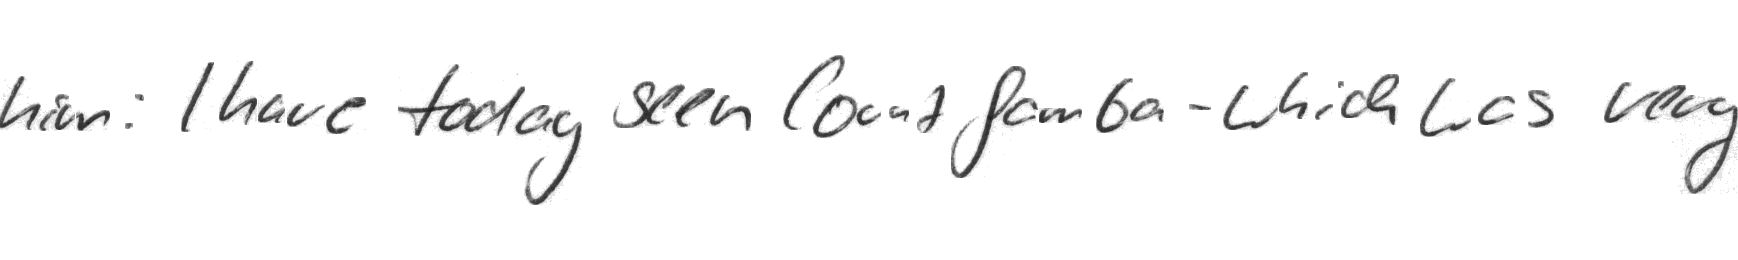 him: I have today seen Count Gamba - which was very